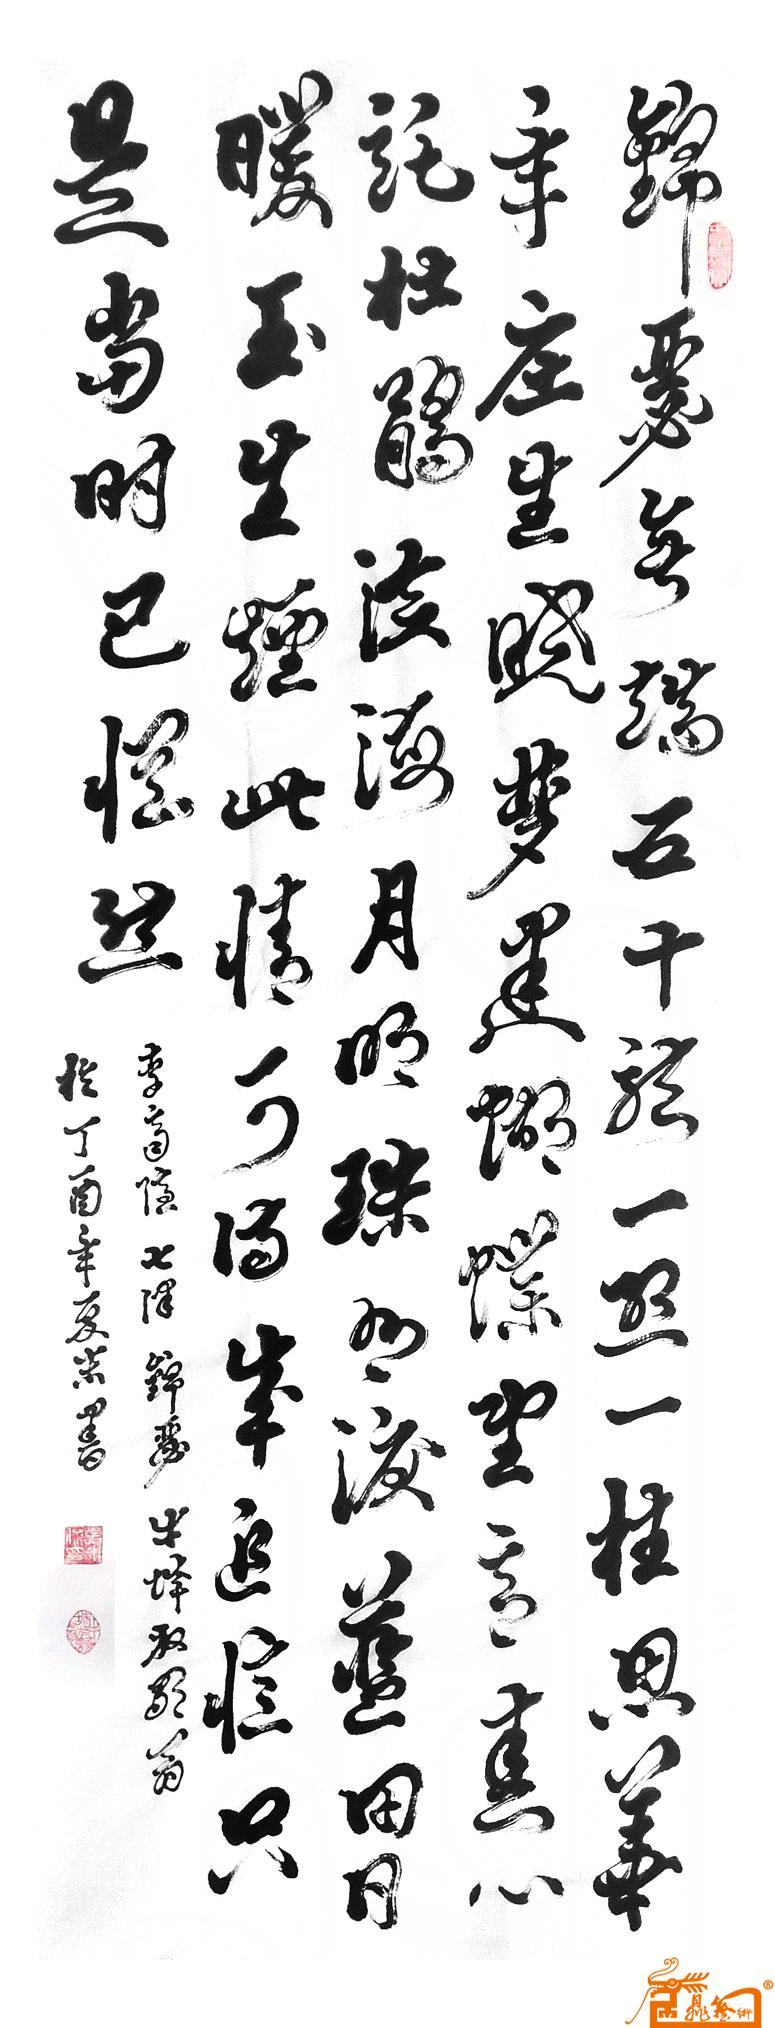 錦瑟無端五十弦一弦一柱思華
年庄生曉夢迷蝴蝶望帝春心
託杜鵑滄海月明珠有淚藍田日
暖玉生煙此情可待成追憶只
是當時已惘然
李商隱七律錦瑟
於丁酉年夏末書